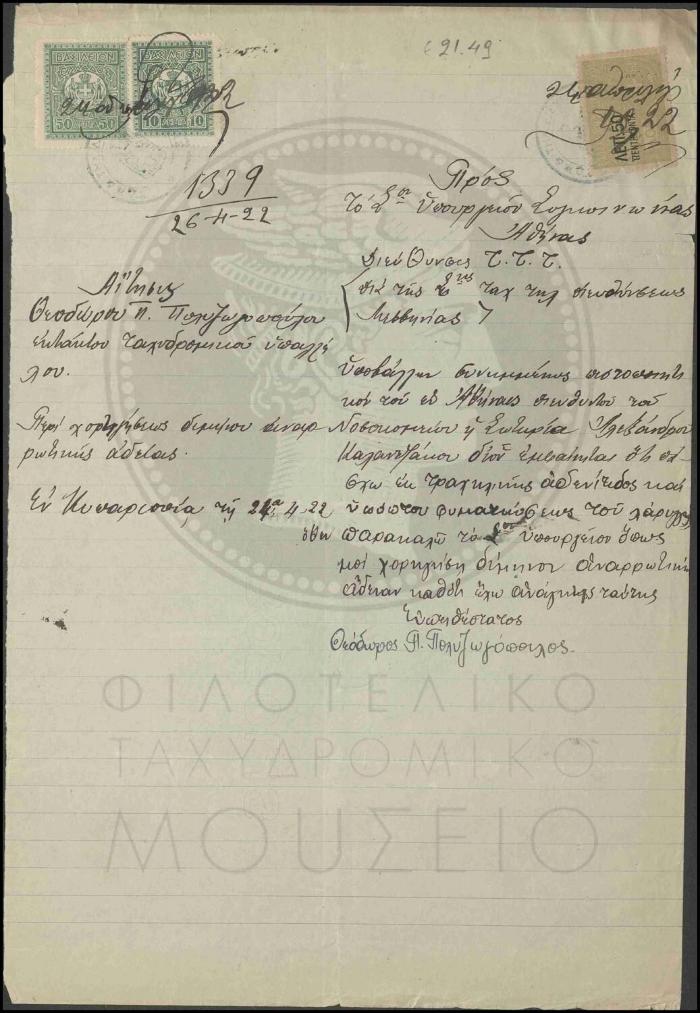 21.49
ΒΑΣΙΛΕΙΟΝ
ΒΑΣΙΛΕΙΟΝ
50 50
10 10
ΛΕΠ. 50
22
1339
26-4-22
Πρὸς
Τὸ Σον Ὑπουργεῖον Συγκοινωνίας
Ἀθήνας
Διεύθυνσις Τ.Τ.Τ.
διὰ τῆς Σης ταχ τηλ διευθύνσεως
Μεσσηνίας
Αἴτησις
Θεοδώρου Π. Πολυζωγοπούλου
ἐκτάκτου ταχυδρομικοῦ ὑπαλλή
λου.
Περὶ χορηγήσεως διμήνου ἀναρ
ρωτικῆς ἀδείας.
Ἐν Κυπαρισσίᾳ τῇ 4.22
Ὑποβάλλων συνημμένως πιστοποιητι
κὸν τοῦ ἐν Ἀθήναις διευθυντοῦ τοῦ
Νοσοκομείου ἡ Σωτηρία Ἀλεξάνδρου
δι' οὗ ἐμφαίνεται ὅτι πά
σχω ἐκ τραχηλικῆς ἀδενίτιδος καὶ
ὑπόπτου φυματιώσεως τοῦ λάρυγγος
ὅθεν παρακαλῶ τὸ Σον ὑπουργεῖον ὅπως
μοὶ χορηγήσῃ δίμηνον ἀναρρωτικὴν
ἄδειαν καθότι ἔχω ἀνάγκην ταύτης
Εὐπειθέστατος
Θεόδωρος Π. Πολυζωγόπουλος
ΦΙΛΟΤΕΛΙΚΟ
ΤΑΧΥΔΡΟΜΙΚΟ
ΜΟΥΣΕΙΟ